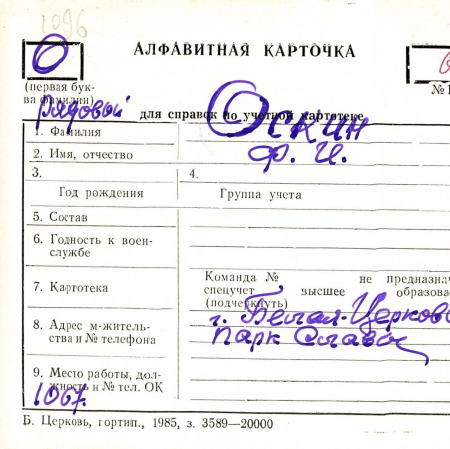 1096
О
АЛФАВИТНАЯ КАРТОЧКА
(первая бук-
ва фамилии)
№
рядовой
для справок по учетной картотеке
1. Фамилия
Оскин
2. Имя, отчество
Ф. И.
3.
4.
Год рождения
Группа учета
5. Состав
6. Годность к воен-
службе
7. Картотека
Команда № не предназнач
спецучет высшее образова
(подчеркнуть)
8. Адрес м-житель-
ства и № телефона
г. Белая-Церковь
Парк Славы
9. Место работы, дол-
жность и № тел. ОК
1067.
Б. Церковь, гортип., 1985, з. 3589—20000